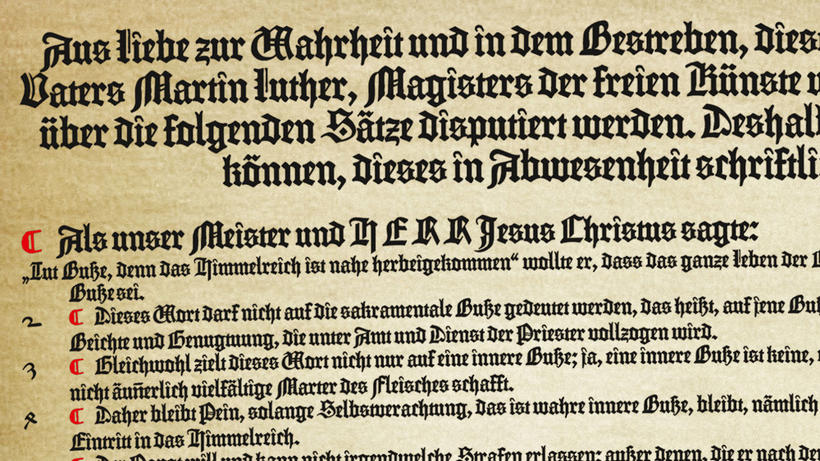 Aus Liebe zur Wahrheit und in dem Bestreben, dies
Vaters Martin Luther, Magisters der freien Künste
über die folgenden Sätze disputiert werden. Deshal
können, dieses in Abwesenheit schriftli
¶ Als unser Meister und HERR Jesus Christus sagte:
„Tut Buße, denn das Himmelreich ist nahe herbeigekommen“ wollte er, dass das ganze Leben der
Buße sei.
2 ¶ Dieses Wort darf nicht auf die sakramentale Buße gedeutet werden, das heißt, auf jene Bu
Beichte und Genugtuung, die unter Amt und Dienst der Priester vollzogen wird.
3 ¶ Gleichwohl zielt dieses Wort nicht nur auf eine innere Buße; ja, eine innere Buße ist keine,
nicht äußerlich vielfältige Marter des Fleisches schafft.
4 ¶ Daher bleibt Pein, solange Selbstverachtung, das ist wahre innere Buße, bleibt, nämlich
Eintritt in das Himmelreich.
will und kann nicht irgendwelche Strafen erlassen; außer denen, die er nach de